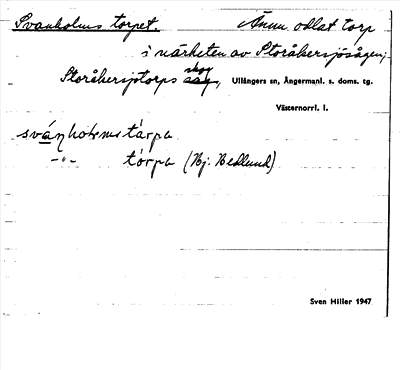 Svanholms torpet. Ännu odlat torp
i närheten av Storåkersjösågen,
Storåkersjotorps skog, Ullångers sn, Ångermanl. s. doms. tg.
Västernorrl. l.
torpa (Hj. Hedlund)
Sven Hiller 1947